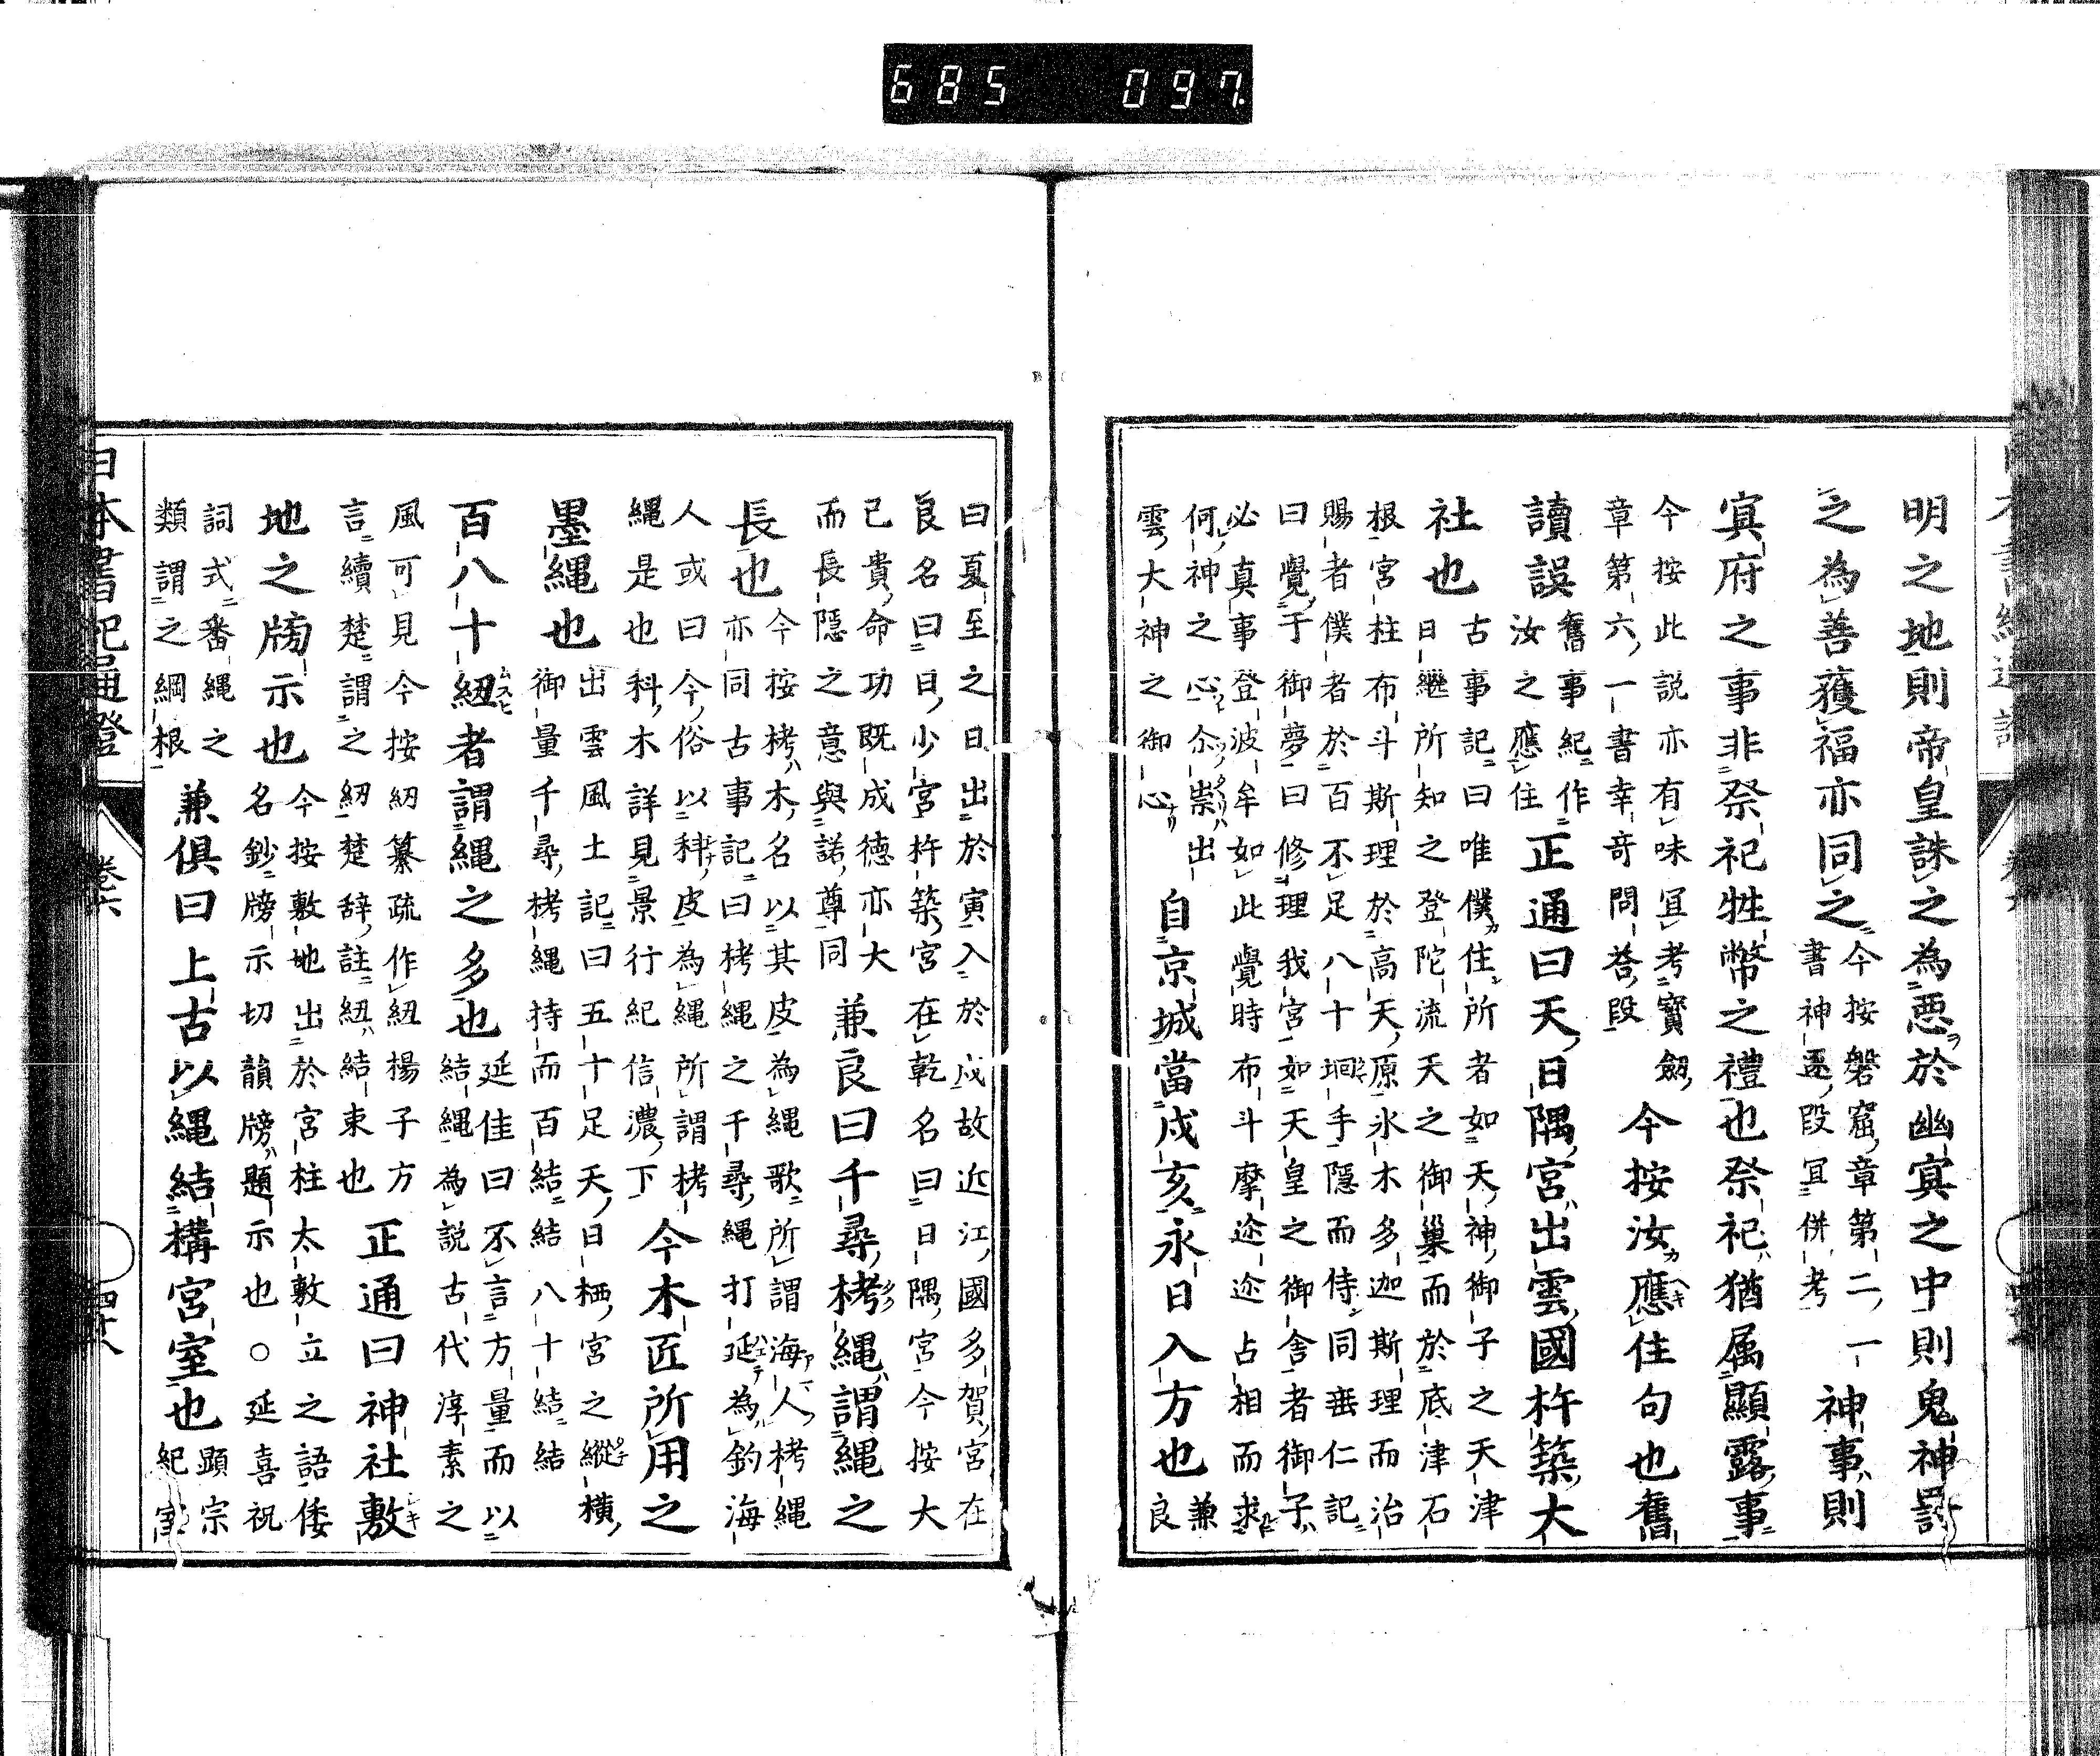 685 097.
明之地則帝皇誅之為悪於幽冥之中則鬼神罰
之為善獲福亦同之今按磐窟章第二一
書神逐段冝併考神事則
冥府之事非祭祀牲幣之禮也祭祀猶属顯露事
今按此説亦有味冝考寳劔
章第六一書幸奇問荅段今按汝應住句也舊
讀誤舊事紀作
汝之應住正通曰天日隅宮出雲國杵築大
社也古事記曰唯僕住所者如天神御子之天津
日繼所知之登陀流天之御巣而於底津石
根宮柱布斗斯理於高天原氷木多迦斯理而治
賜者僕者於百不足八十坰手隱而侍同垂仁記
曰覺于御夢曰修理我宮如天皇之御舎者御子
必真事登波牟如此覺時布斗摩迩迩占相而求
何神之心尒祟出
雲大神之御心自京城當戌亥永日入方也兼
良
曰夏至之日出於寅入於戌故近江國多賀宮在
艮名曰日少宮杵築宮在乾名曰日隅宮今按大
己貴命功既成德亦大
而長隱之意與諾尊同兼良曰千尋栲縄謂縄之
長也今按栲木名以其皮為縄歌所謂海人栲縄
亦同古事記曰栲縄之千尋縄打延為釣海
人或曰今俗以科皮為縄所謂栲
縄是也科木詳見景行紀信濃下今木匠所用之
墨縄也出雲風土記曰五十足天日栖宮之縱横
御量千尋栲縄持而百結結八十結結
百八十紐者謂縄之多也延佳曰不言方量而以
結縄為説古代淳素之
風可見今按紉纂疏作紐楊子方
言續楚謂之紉楚辞註紐結束也正通曰神社敷
地之牓示也今按敷地出於宮柱太敷立之語倭
名鈔牓示切韻牓題示也○延喜祝
詞式番縄之
類謂之綱根兼倶曰上古以縄結構宮室也顕宗
紀室
日本書紀通證
卷六
四十八